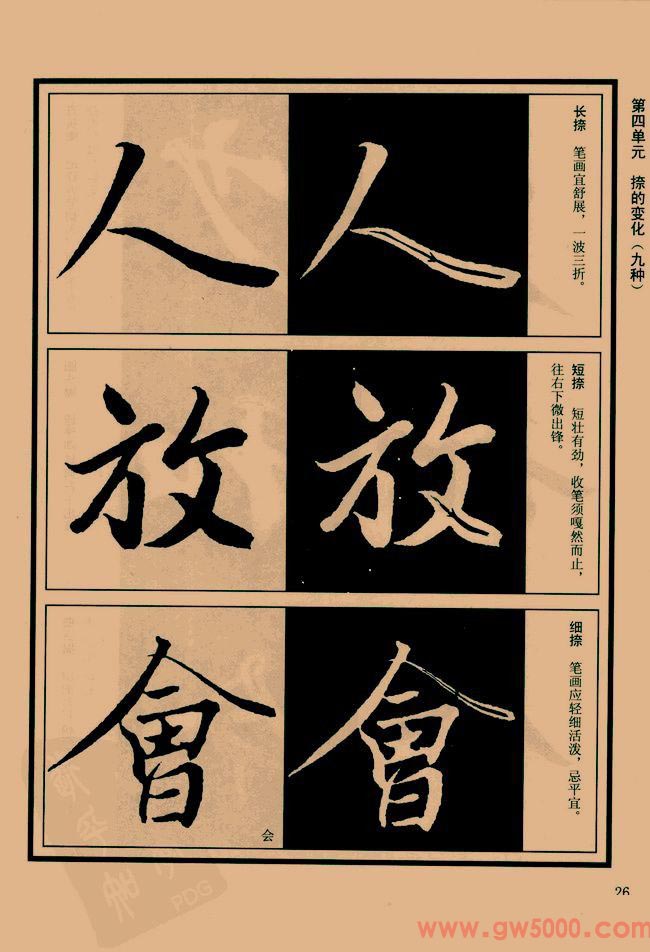 第四单元 捺的变化（九种）
长捺 笔画宜舒展，一波三折。
人
人
短捺 短壮有劲，收笔须嘎然而止，
往右下微出锋。
放
放
细捺 笔画应轻细活泼，忌平宜。
會
會
会
26
www.gw5000.com
PDG